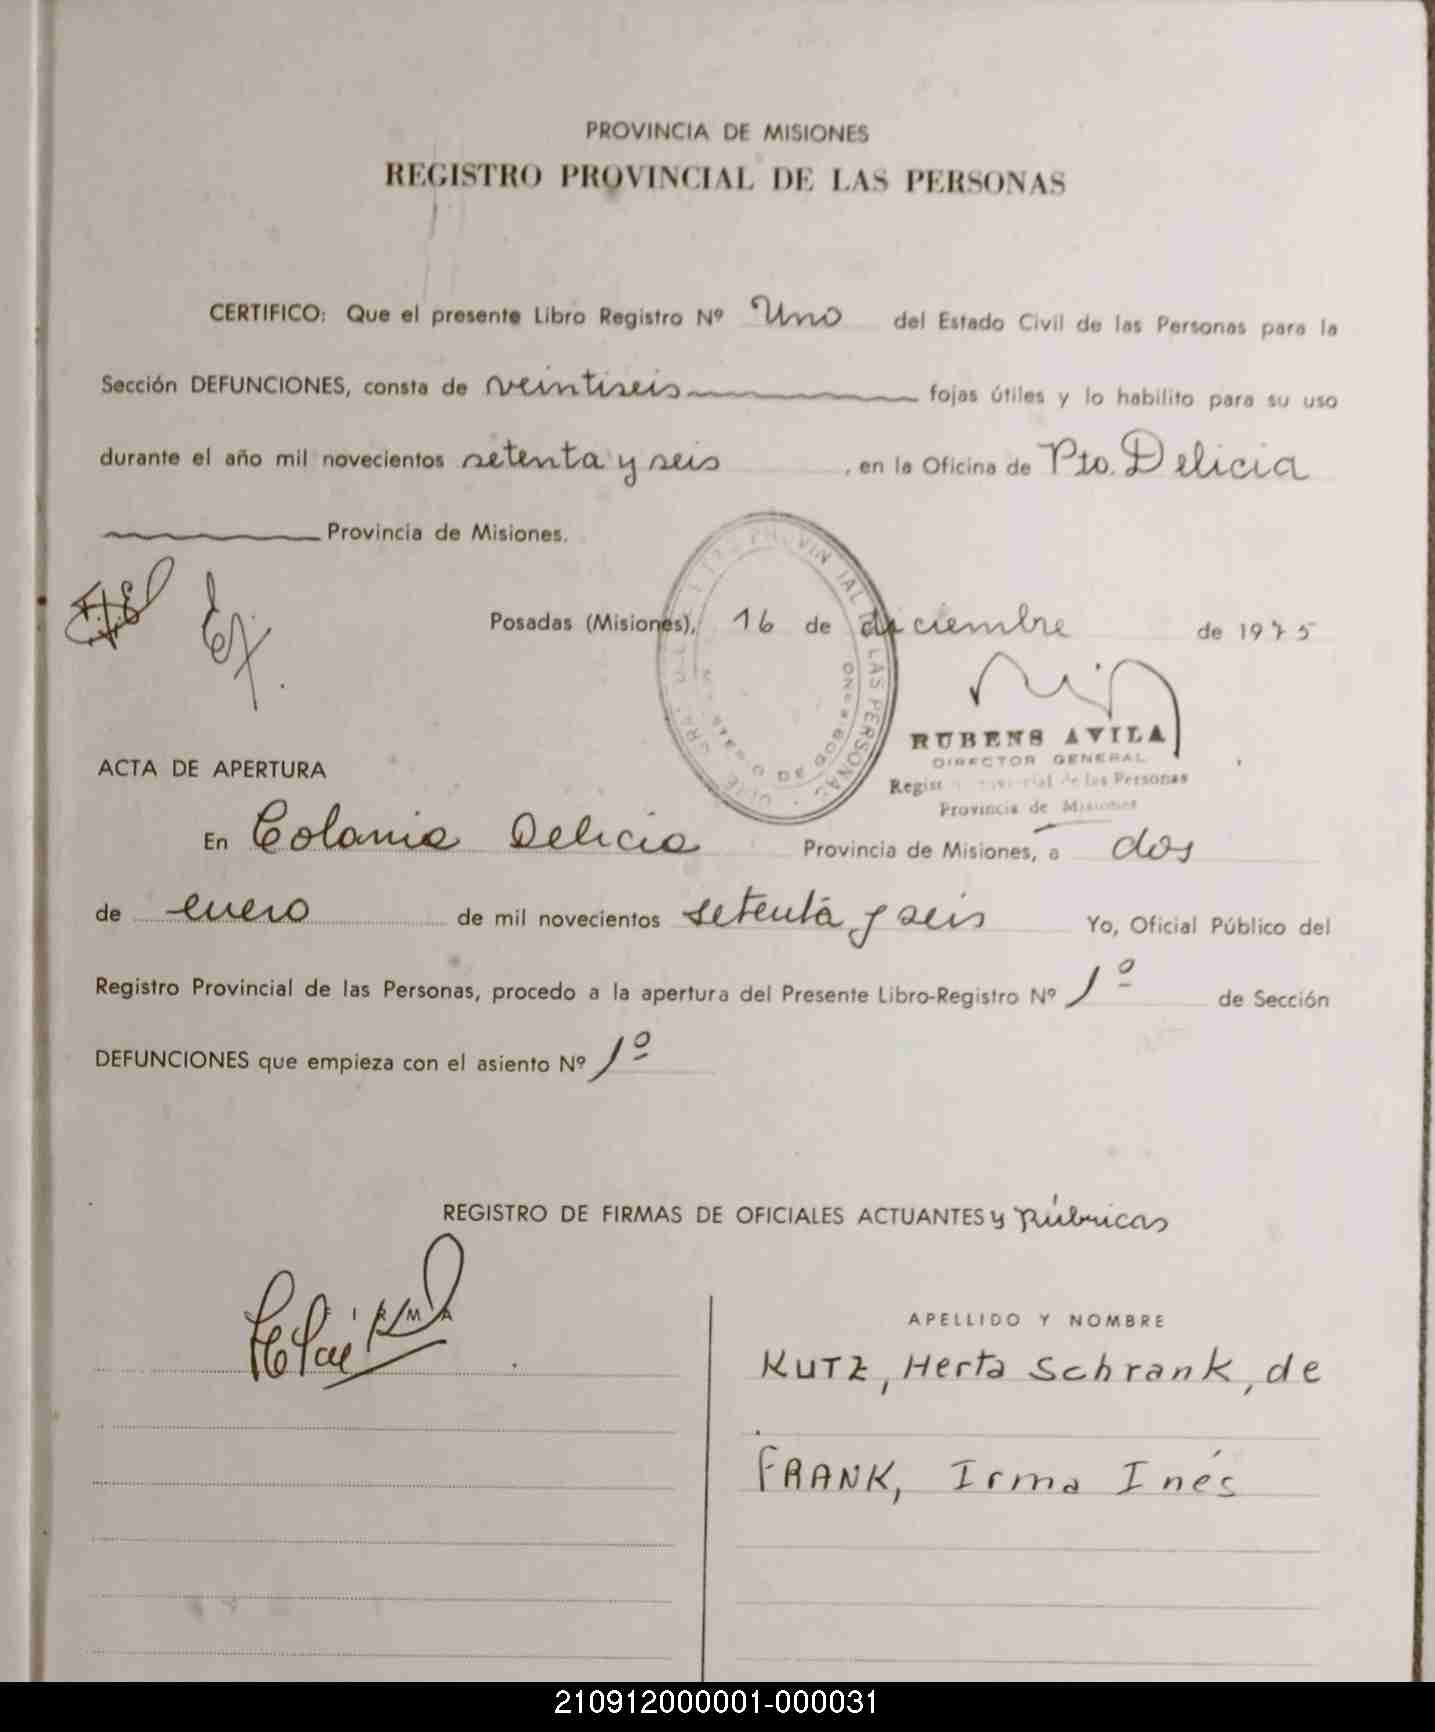 PROVINCIA DE MISIONES
REGISTRO PROVINCIAL DE LAS PERSONAS
CERTIFICO: Que el presente Libro Registro Nº Uno del Estado Civil de las Personas para la
Sección DEFUNCIONES, consta de veintiseis fojas útiles y lo habilito para su uso
durante el año mil novecientos setenta y seis, en la Oficina de Pto. Delicia
Provincia de Misiones.
Posadas (Misiones), 16 de diciembre de 1975
RUBENS AVILA
DIRECTOR GENERAL
Registro Provincial de las Personas
Provincia de Misiones
ACTA DE APERTURA
En Colonia Delicia Provincia de Misiones, a dos
de enero de mil novecientos setenta y seis Yo, Oficial Público del
Registro Provincial de las Personas, procedo a la apertura del Presente Libro-Registro Nº 1º de Sección
DEFUNCIONES que empieza con el asiento Nº 1º
REGISTRO DE FIRMAS DE OFICIALES ACTUANTES y Rúbricas
FIRMA
APELLIDO Y NOMBRE
KUTZ, Herta Schrank, de
FRANK, Irma Inés
210912000001-000031